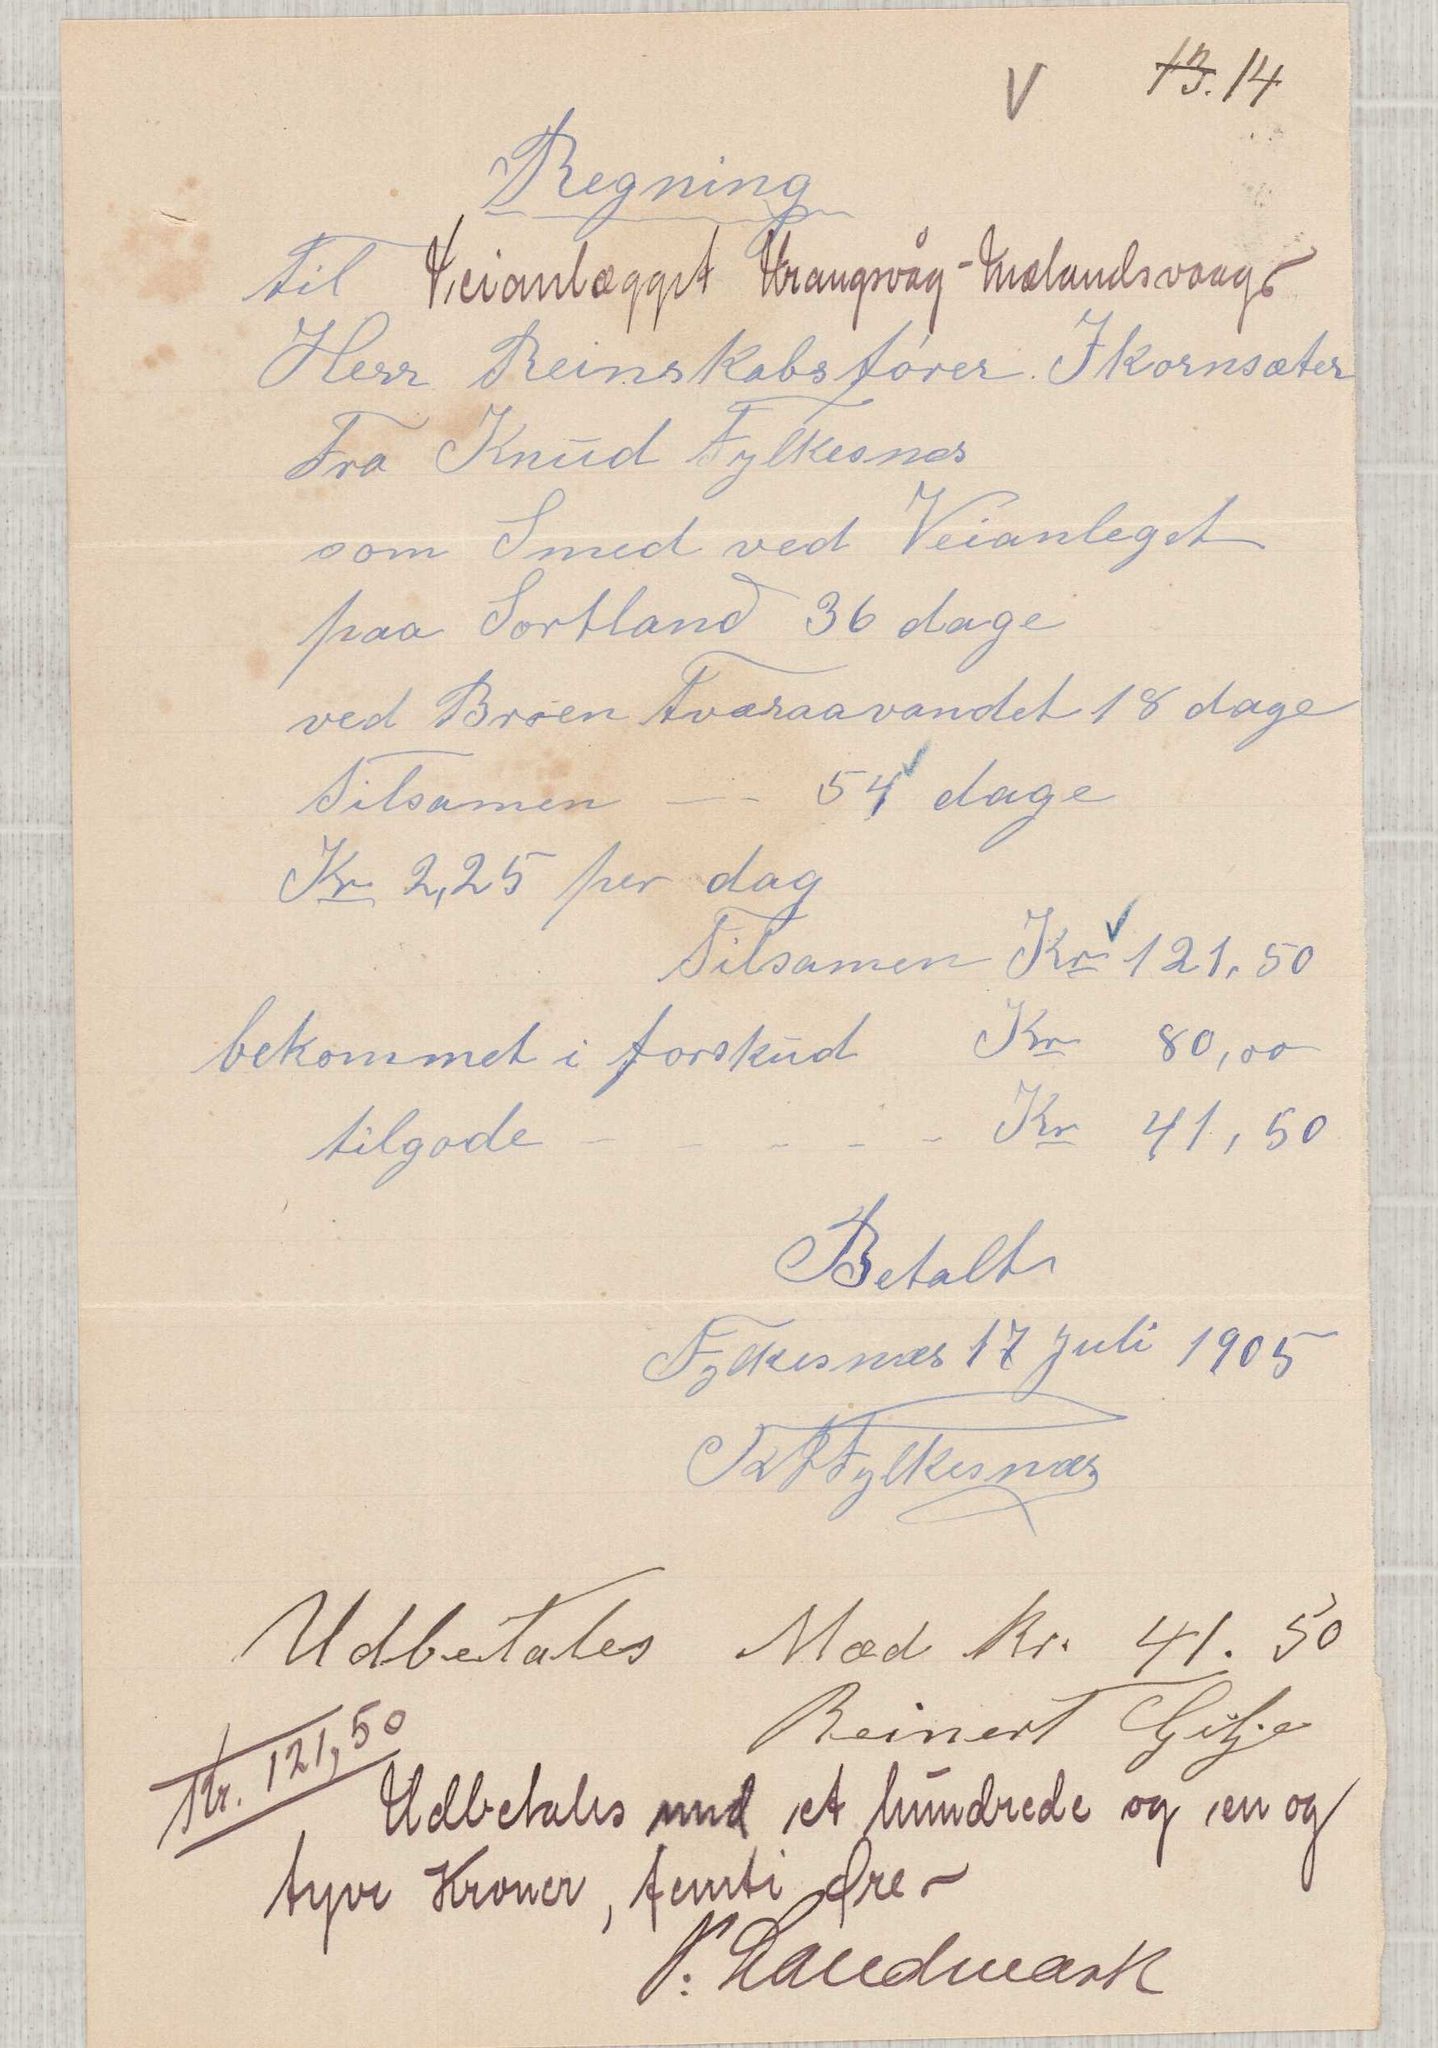 V 13. 14
Regning
til Veianlægget Vrangsvåg - Mælandsvaag
Herr Reinskabsfører Ikornsæter
Fra Knud Fylkesnes
som Smed ved Veianleget
paa Sortland 36 dage
ved Broen Tværaavandet 18 dage
Tilsamen -- 54 dage
Kr 2,25 per dag
Tilsamen Kr 121,50
bekommet i forskud Kr 80,00
tilgode - - - - - Kr 41,50
Betalt
Fylkesnæs 17 juli 1905
Fylkesnæs
Udbetales Mæd Kr. 41.50
Reinert Gilje
Kr. 121,50
Udbetales med et hundrede og en og
tyve Kroner, femti Øre
P. Landmark